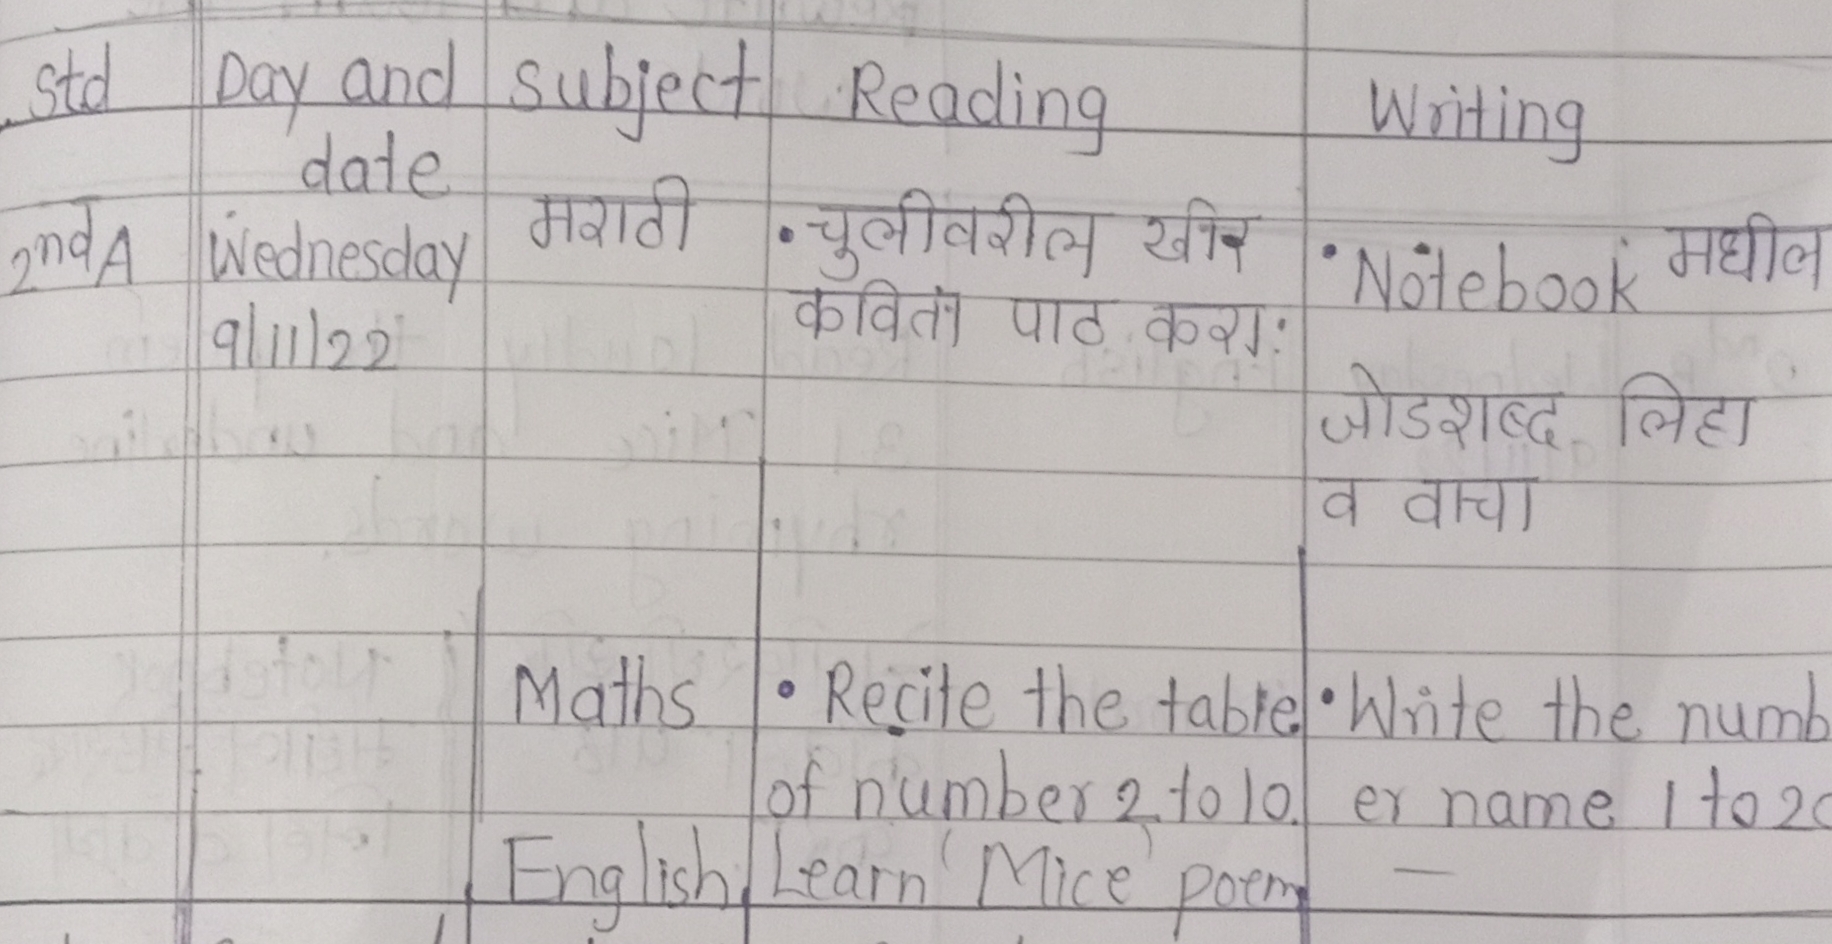 Std Day and Subject Reading Writing
date
2nd A Wednesday मराठी • चुलीवरील खीर • Notebook मधील
9/11/22 कविता पाठ करा.
जोडशब्द लिहा
व वाचा
Maths • Recite the table • Write the numb
of number 2 to 10. er name 1 to 20
English Learn 'Mice' poem —